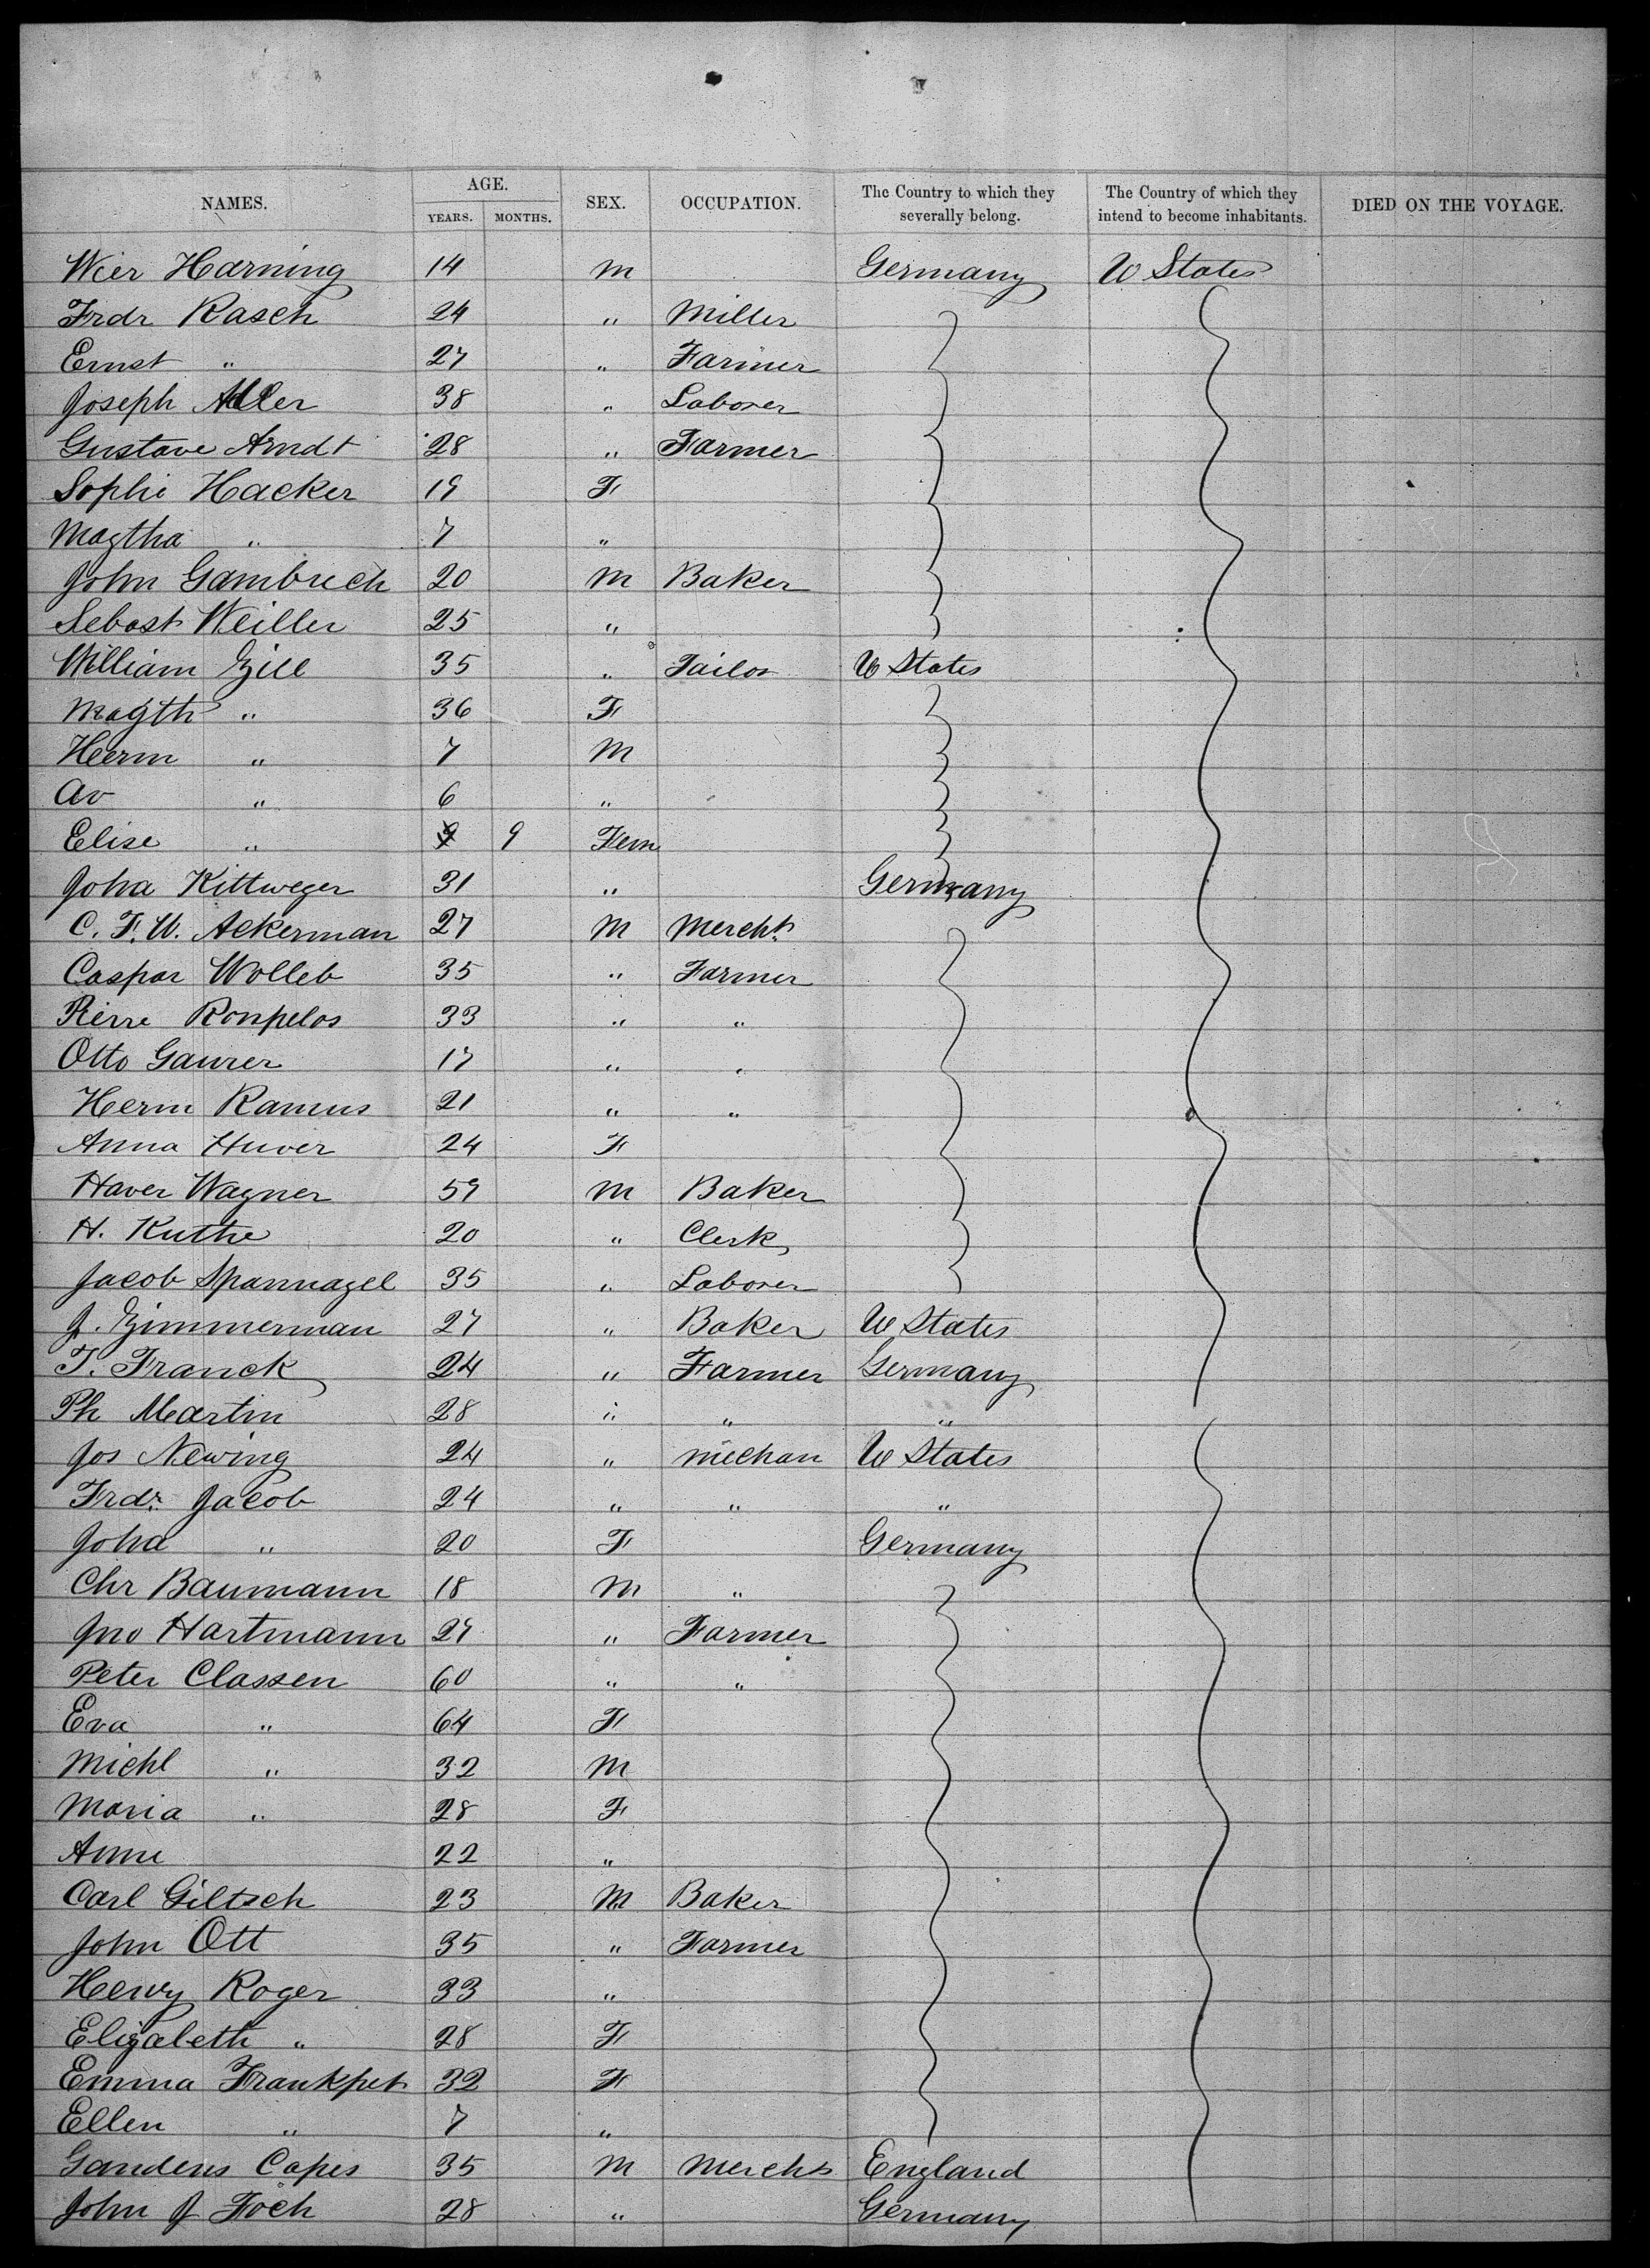 NAMES. AGE. YEARS. MONTHS. SEX. OCCUPATION. The Country to which they severally belong. The Country of which they intend to become inhabitants. DIED ON THE VOYAGE.
Wier Harning 14 M Germany U States
Frdr Rasch 24 " Miller
Ernst " 27 " Farmer
Joseph Adler 38 " Laborer
Gustave Arndt 28 " Farmer
Sophi Hacker 19 F
Magtha " 7 "
John Gambrich 20 M Baker
Sebast Weiller 25 "
William Zill 35 " Tailor U States
Magth " 36 F
Herm " 7 M
Av " 6 "
Elise " 9 Fem
Joha Kittweger 31 " Germany
C. F. W. Ackerman 27 M Mercht
Caspar Wolleb 35 " Farmer
Pierre Ronpelos 33 " "
Otto Gaurer 17 " "
Herm Ramus 21 " "
Anna Huver 24 F
Haver Wagner 59 M Baker
H. Kuthe 20 " Clerk
Jacob Spannagel 35 " Laborer
J. Zimmerman 27 " Baker U States
T. Franck 24 " Farmer Germany
Ph Martin 28 " " "
Jos Newing 24 " mechan U States
Frdr. Jacob 24 " " "
Joha " 20 F Germany
Chr Baumann 18 M "
Jno Hartmann 27 " Farmer
Peter Classen 60 " "
Eva " 64 F
Michl " 32 M
Maria " 28 F
Anne 22 "
Carl Giltsch 23 M Baker
John Ott 35 " Farmer
Henry Roger 33 "
Elizabeth " 28 F
Emma Frankpet 32 F
Ellen " 7 "
Gandens Capes 35 M Mercht England
John J Foch 28 " Germany